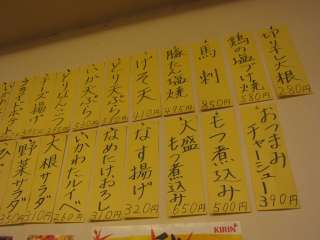 切業し大根
280円
鶏の塩づけ焼
380円
馬刺
850円
豚たん塩焼
495円
げそ天
410円
とり天ぷら
いか天ぷら
チーズ揚げ
おつまみチャーシュー
390円
もつ煮込み
500円
大盛もつ煮込み
650円
なす揚げ
320円
なめたけおろし
310円
いかわたルイベ
260円
大根サラダ
310円
野菜サラダ
350円
KIRIN